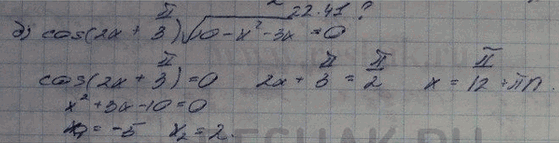 22.41?
д) cos(2x + π/3)√10-x²-3x = 0
cos(2x + π/3) = 0 2x + π/3 = π/2 x = π/12 + πn.
x² + 3x - 10 = 0
x₁ = -5 x₂ = 2.